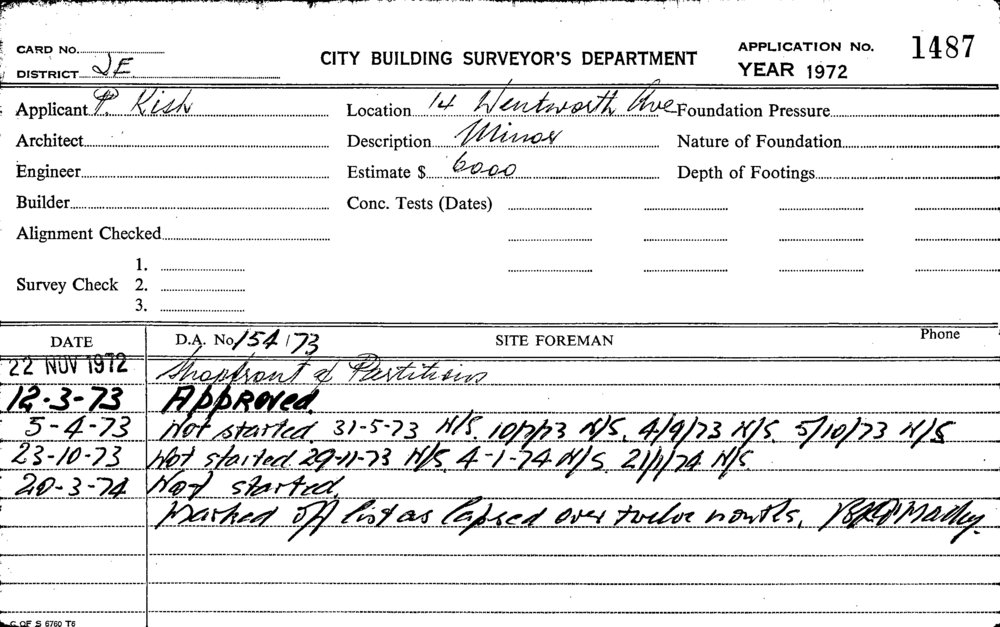 CARD No.
DISTRICT JE
CITY BUILDING SURVEYOR'S DEPARTMENT
APPLICATION No. 1487
YEAR 1972
Applicant P. Kish
Location 14 Wentworth Ave
Foundation Pressure
Architect
Description Minor
Nature of Foundation
Engineer
Estimate $ 6000
Depth of Footings
Builder
Conc. Tests (Dates)
Alignment Checked
Survey Check
1.
2.
3.
DATE
D.A. No 154/73
SITE FOREMAN
Phone
22 NOV 1972 Shopfront & Partitions
12-3-73 Approved.
5-4-73 Not started. 31-5-73 N/S. 10/7/73 N/S. 4/9/73 N/S. 5/10/73 N/S
23-10-73 Not started. 29-11-73 N/S. 4-1-74 N/S. 21/1/74 N/S
20-3-74 Not started.
Marked off list as lapsed over twelve months.
C OF S 6760 T6